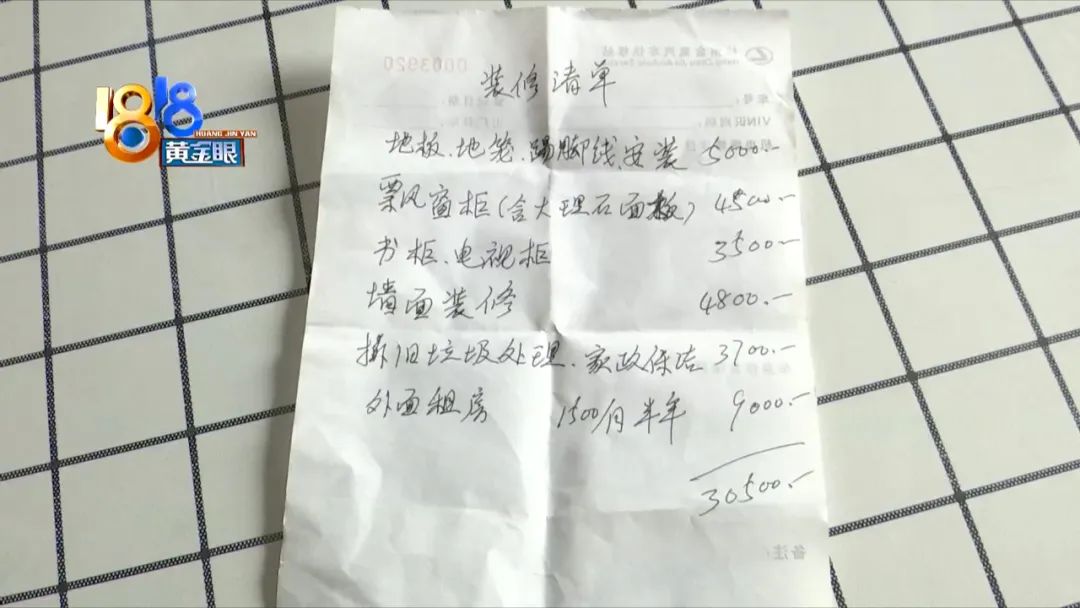 1818
HUANG JIN YAN
黄金眼
0003920
装修清单
地板、地笼、踢脚线安装 5000.-
飘风窗柜(含大理石面板) 4500.-
书柜、电视柜 3500.-
墙面装修 4800.-
拆旧垃圾处理、家政保洁 3700.-
外面租房 1500/月 半年 9000.-
30500.-
备注: